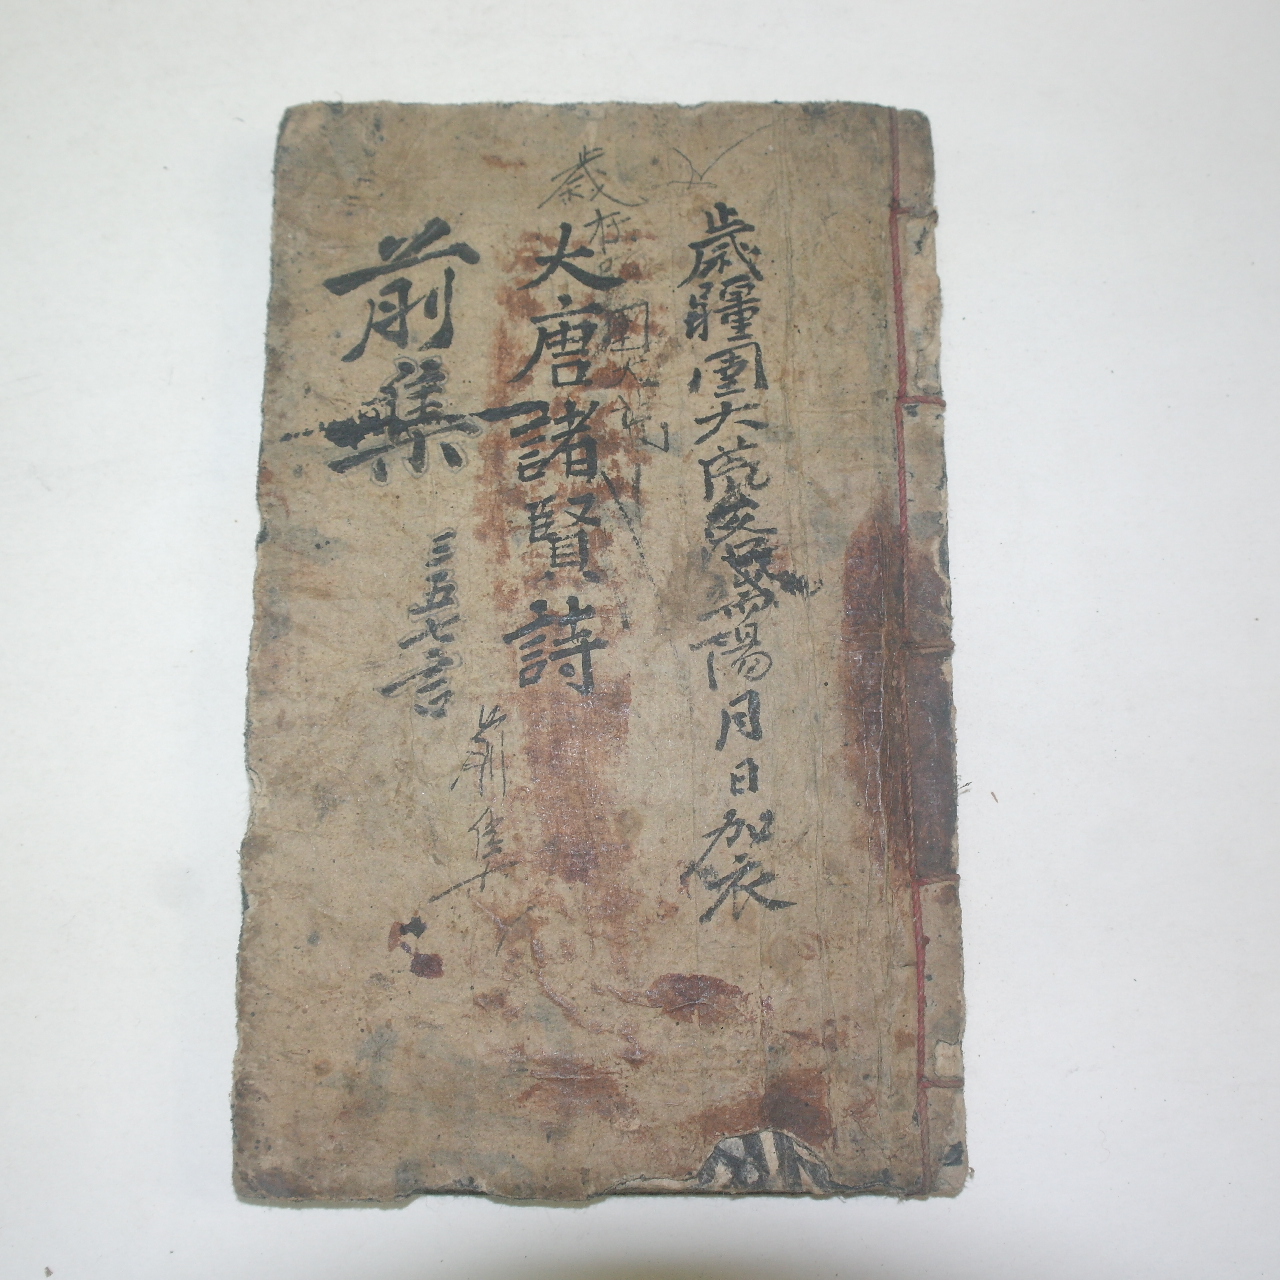 歲疆圉大荒落陽月日加衣
歲在
圉大荒
大唐諸賢詩
前集
三五七言
前集